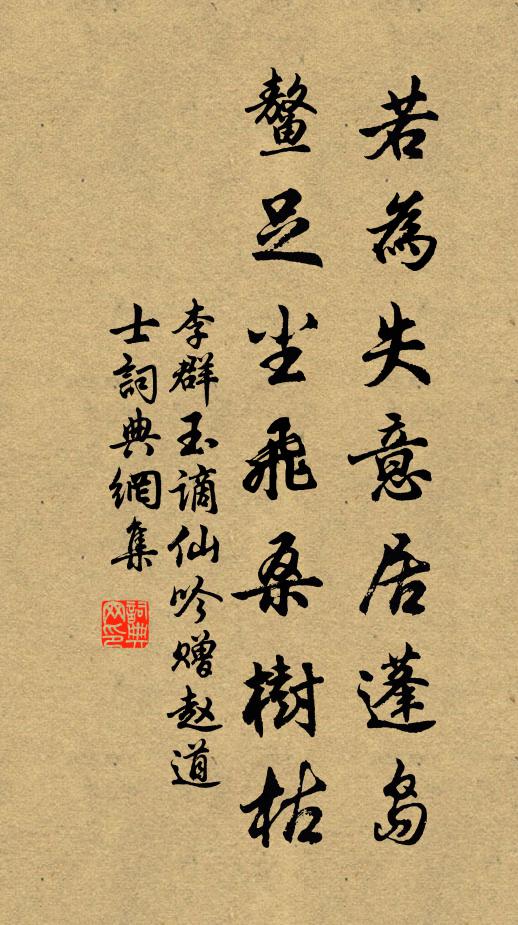 若為失意居蓬島
鼇足塵飛桑樹枯
李群玉謫仙吟赠赵道
士詞典網集
詞典網印